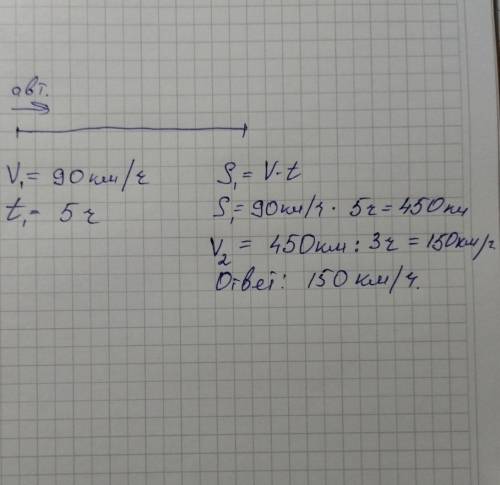 авт.
V₁ = 90 км/ч
t₁ - 5 ч
S₁ = V · t
S₁ = 90 км/ч · 5 ч = 450 км
V₂ = 450 км : 3 ч = 150 км/ч
Ответ: 150 км/ч.